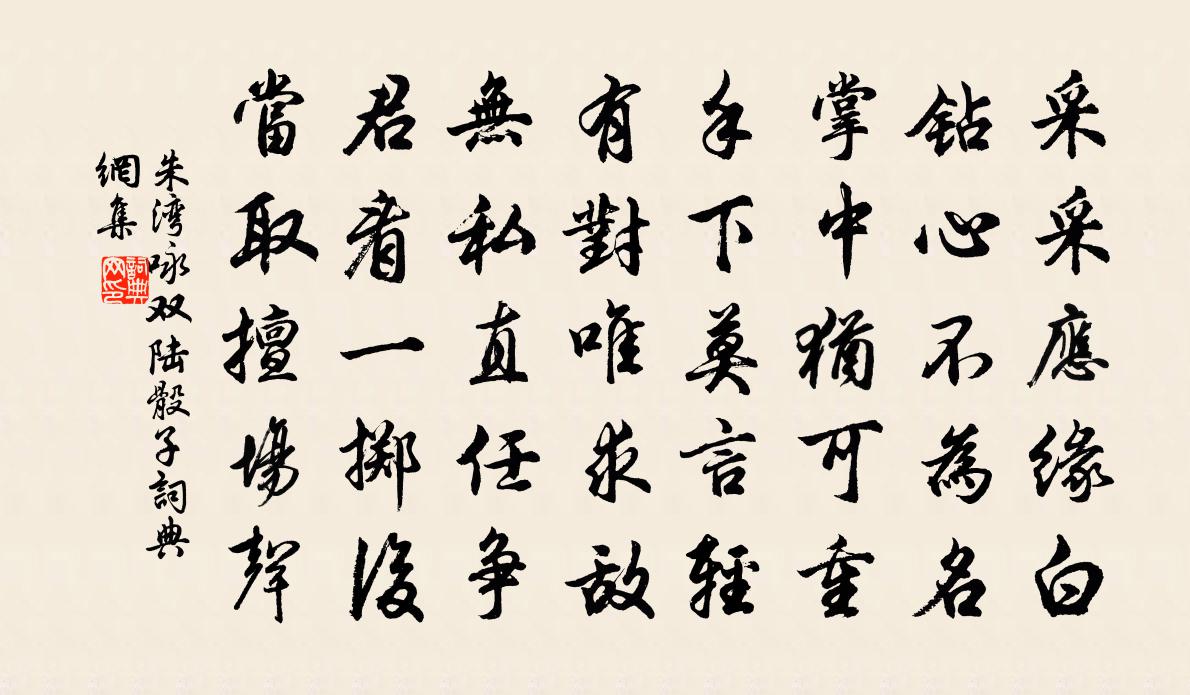 采采應緣白
鈷心不為名
掌中猶可重
手下莫言輕
有對唯求敵
無私直任争
君看一擲後
當取擅場聲
朱湾咏双陆骰子詞典
網集
詞典
网印